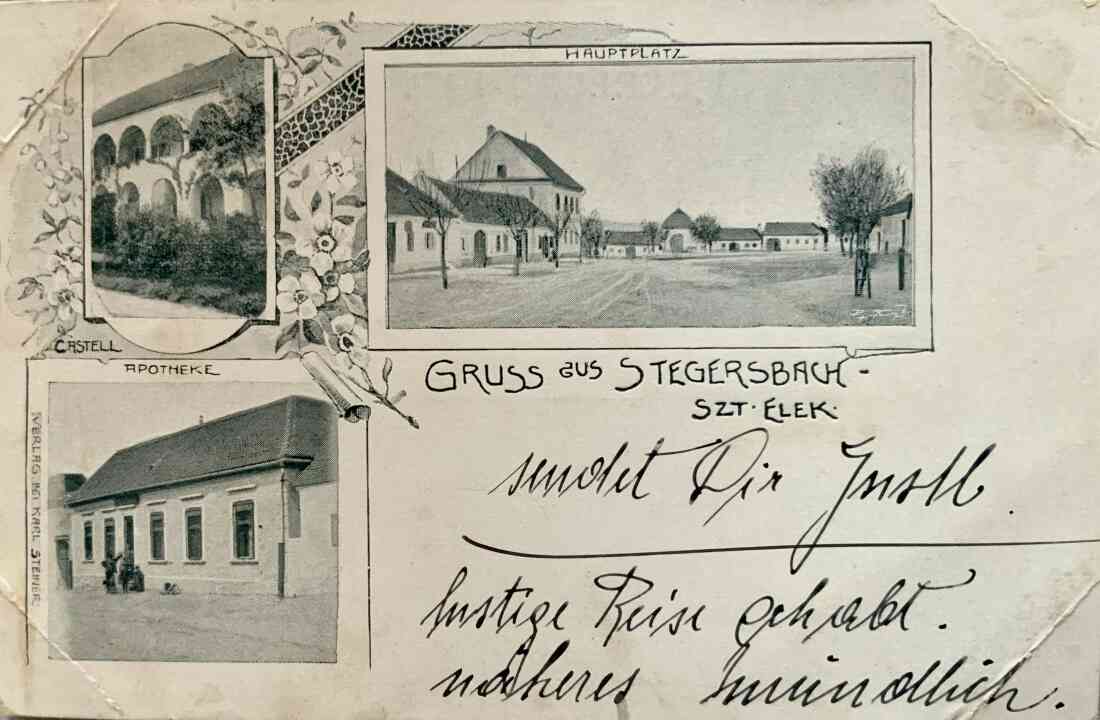 HAUPTPLATZ
CASTELL
APOTHEKE
VERLAG BEI KARL STEINER.
GRUSS aus STEGERSBACH -
SZT. ELEK.
sendet Dir
lustige Reise gehabt.
näheres mündlich.